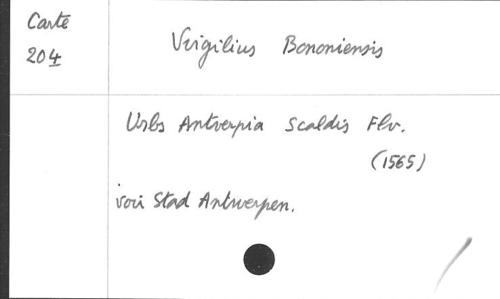 Carte
204
Virgilius Bononiensis
Urbs Antverpia Scaldis Flv.
(1565)
voir Stad Antwerpen.